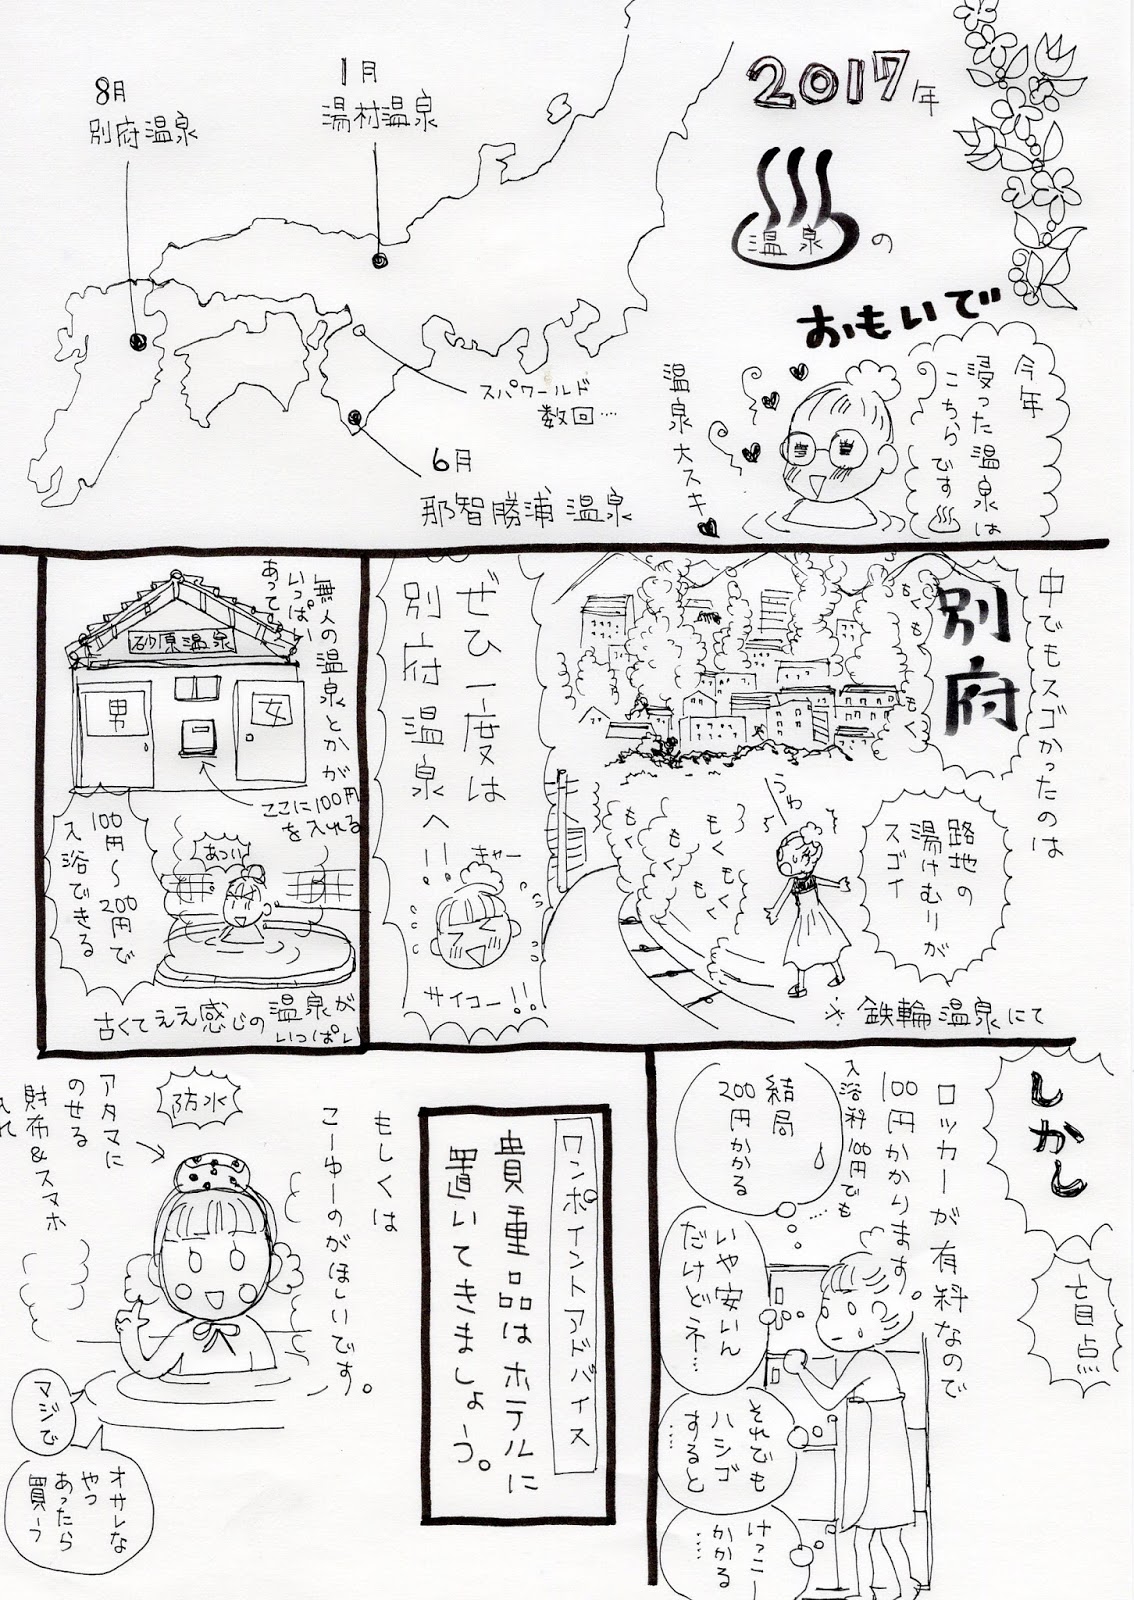 2017年
温泉の
おもいで
今年
浸った温泉は
こちらです♨
温泉大スキ♥
1月
湯村温泉
8月
別府温泉
スパワールド
数回…
6月
那智勝浦温泉
中でもスゴかったのは
別府
もくもく
もくもく
路地の
湯けむりが
スゴイ
うわー
もく
もく
もく
もく
もく
※鉄輪温泉にて
ぜひ一度は
別府温泉へ!!
キャー
サイコー!!
無人の温泉とかが
いっぱい
あって
砂原温泉
男
女
ここに100円
を入れる
100円〜200円で
入浴できる
あつい
古くてええ感じの温泉が
いっぱい
しかし
盲点
ロッカーが有料なので
100円かかります。
入浴料100円でも
……
結局
200円かかる
いや安いん
だけどネ…
それでも
ハシゴ
すると
……
けっこー
かかる
……
ワンポイントアドバイス
貴重品はホテルに
置いてきましょーう。
もしくは
こーゆーのがほしいです。
防水
アタマに
のせる
財布&スマホ
入れ
マジで
オサレな
やつ
あったら
買ーう